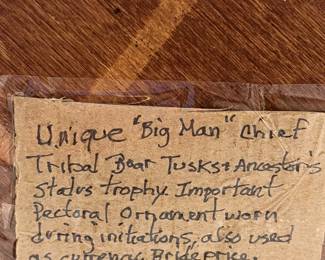 Unique "Big Man" Chief
Tribal Boar Tusks & Ancestor's
Status trophy. Important
Pectoral Ornament worn
during initiations, also used
as currency, Brideprice.